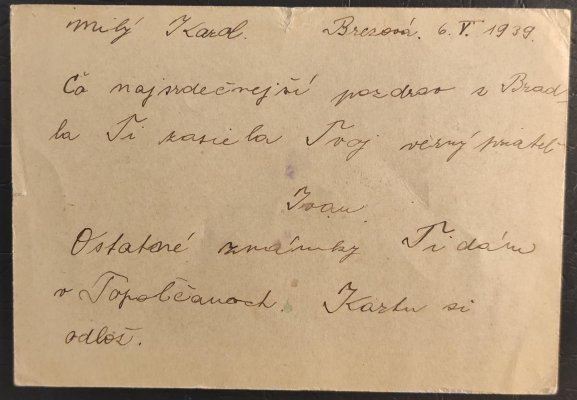 Milý Karol. Brezová. 6. V. 1939.
Čo najsrdečnejší pozdrav z Brad-
la Ti zasiela Tvoj verný priateľ
Ivan
Ostatné známky Ti dám
v Topolčanoch. Kartu si
odlož.